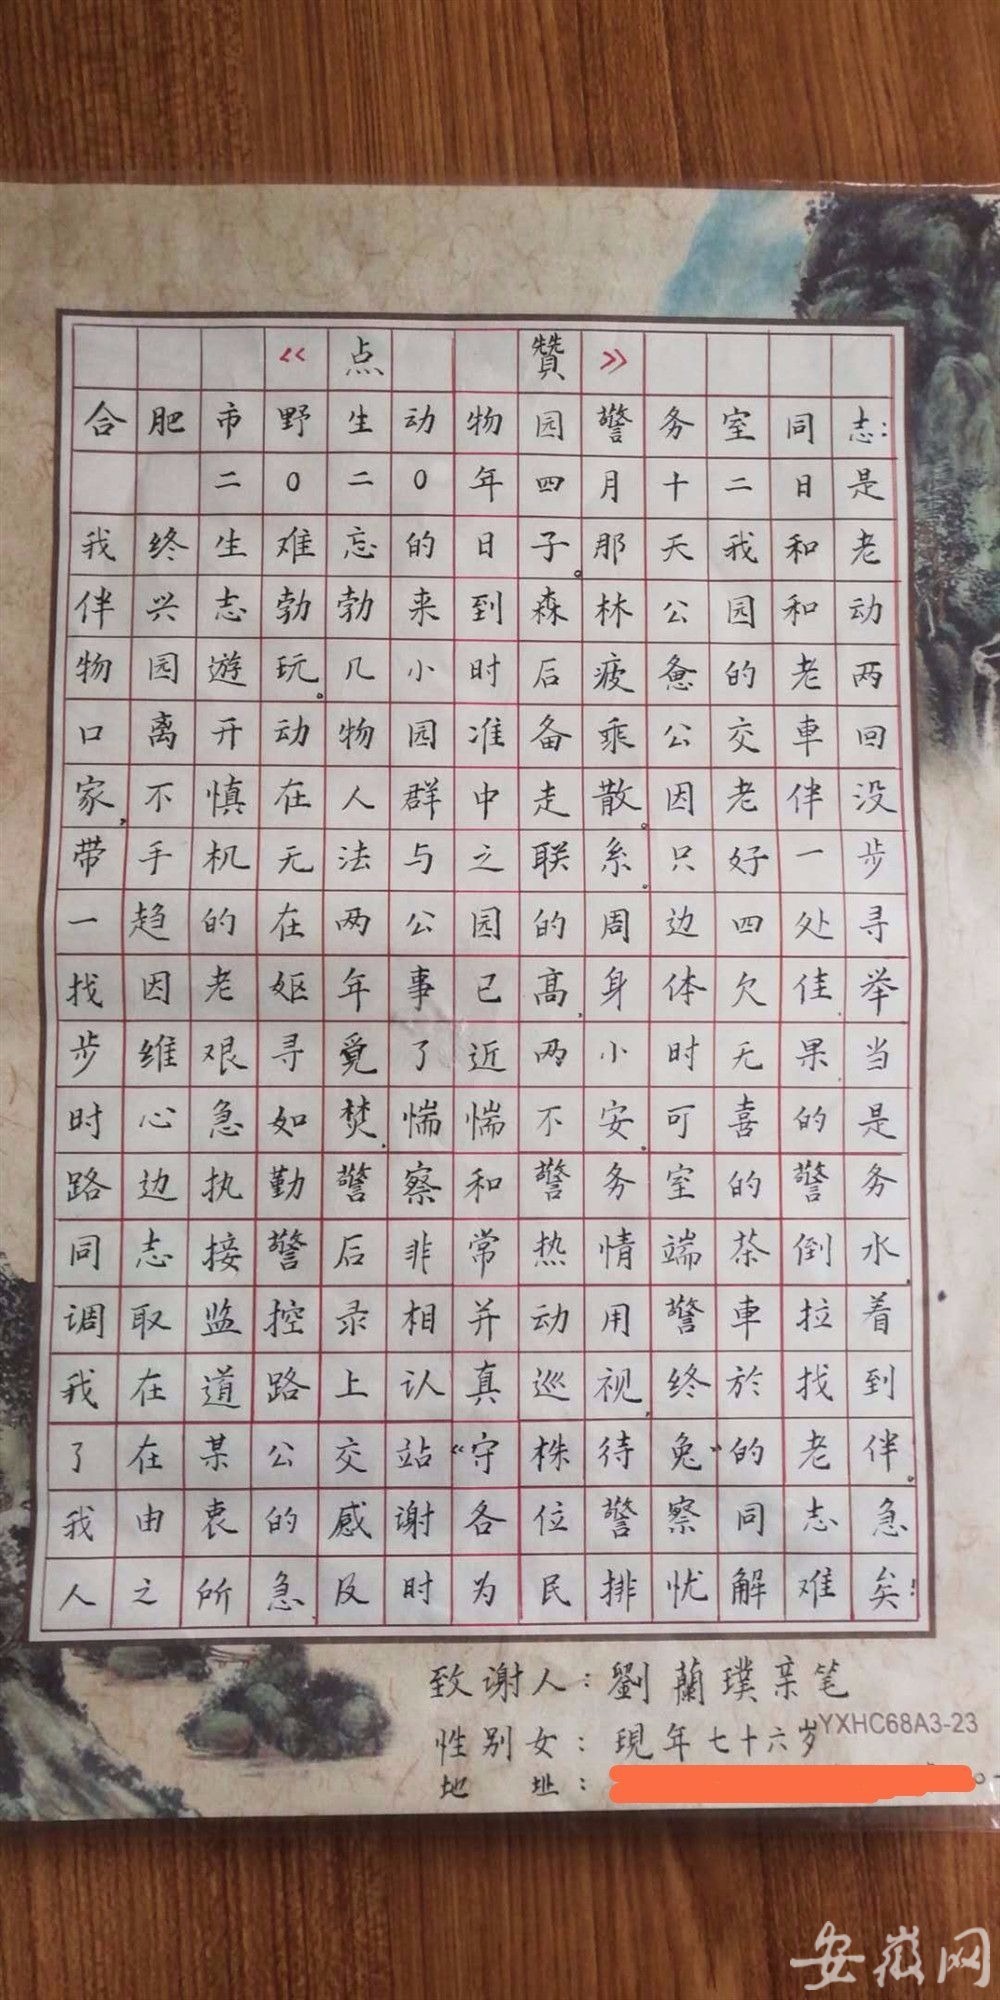 《点赞》
合肥市野生动物园警务室同志:
二〇二〇年四月十二日是
我终生难忘的日子。那天我和老
伴兴志勃勃来到森林公园和动
物园遊玩。几小时后疲惫的老两
口离开动物园准备乘公交車回
家,不慎在人群中走散。因老伴没
带手机无法与之联系。只好一步
一趋的在两公园的周边四处寻
找因老妪年事已高,身体欠佳举
步维艰寻覓了近两小时无果当
时心急如焚,惴惴不安。可喜的是
路边执勤警察和警务室的警务
同志接警后非常热情端茶倒水,
调取监控录相并动用警車拉着
我在道路上认真巡视,终於找到
了在某公交站“守株待兔”的老伴。
我由衷的感谢各位警察同志急
人之所急,及时为民排忧解难矣!
致谢人:劉蘭璞亲笔
YXHC68A3-23
性别女:現年七十六岁
地址:
安徽网